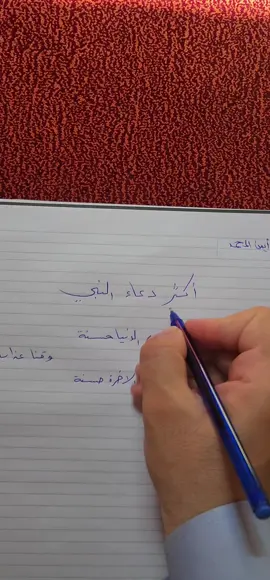 أكثر دعاء النبي
الدنيا حسنة
وقنا عذاب
الآخرة حسنة